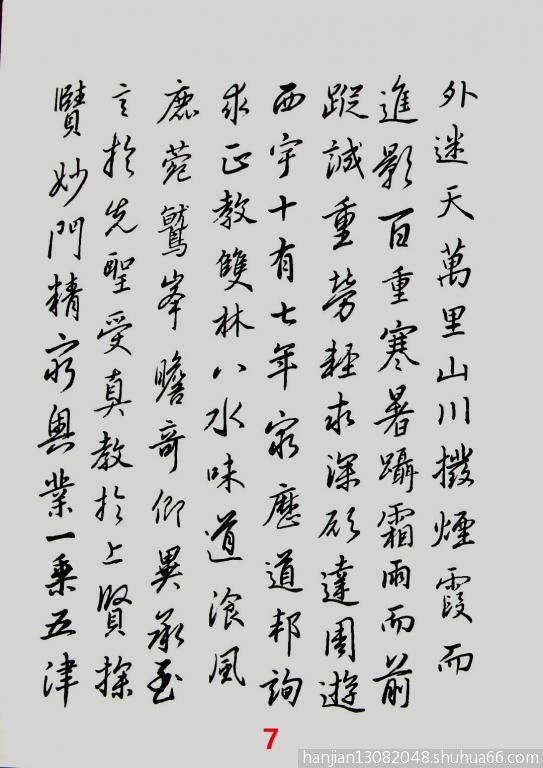 外迷天萬里山川撥煙霞而
進影百重寒暑躡霜雨而前
蹤誠重勞輕求深願達周遊
西宇十有七年窮歷道邦詢
求正教雙林八水味道飡風
鹿菀鷲峯瞻奇仰異承至
言於先聖受真教於上賢探
賾妙門精窮奧業一乗五津
7
hanjian13082048.shuhua66.com